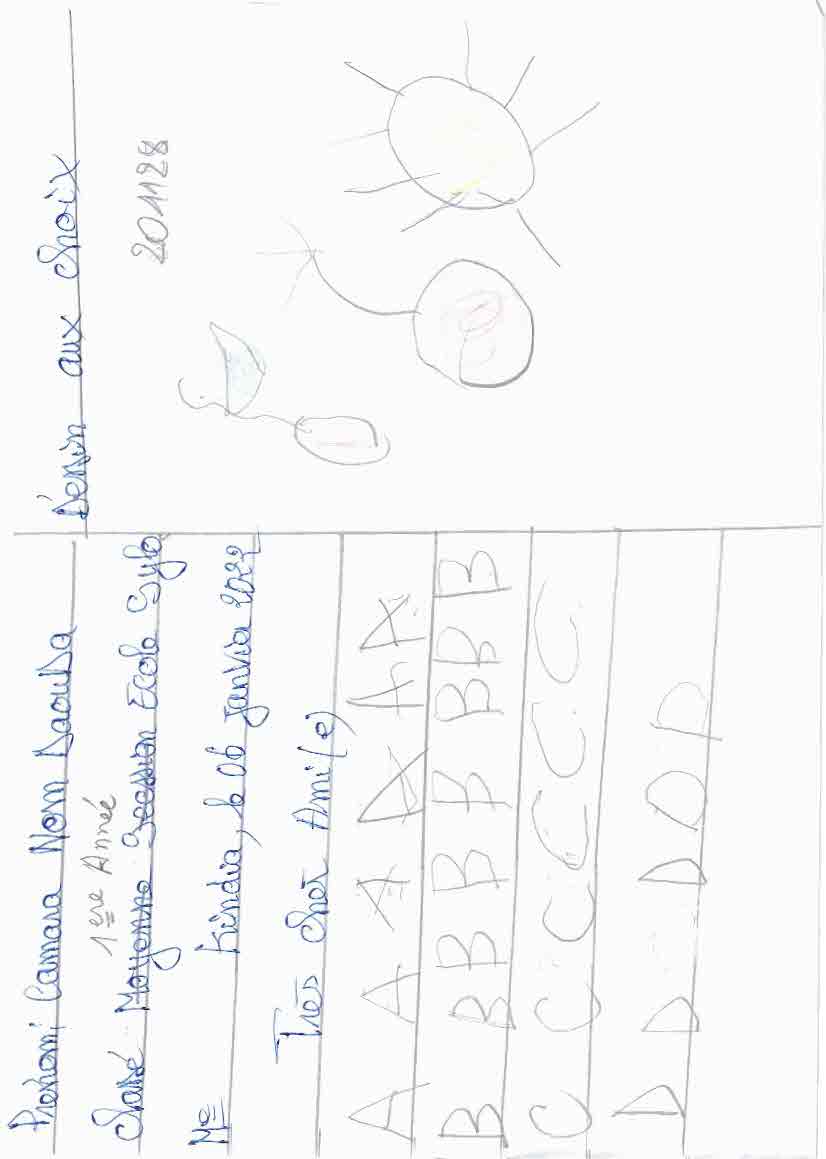 Prenom; Camara Nom Daouda
1ere Année
Classé Moyenne Section Ecole Sylo
Me Kindia, le 06 janvier 2022
Tres cher Ami(e)
A A A A A A
B B B B B B B
C C C C C C
D D D D D
Dessin aux choix
201128